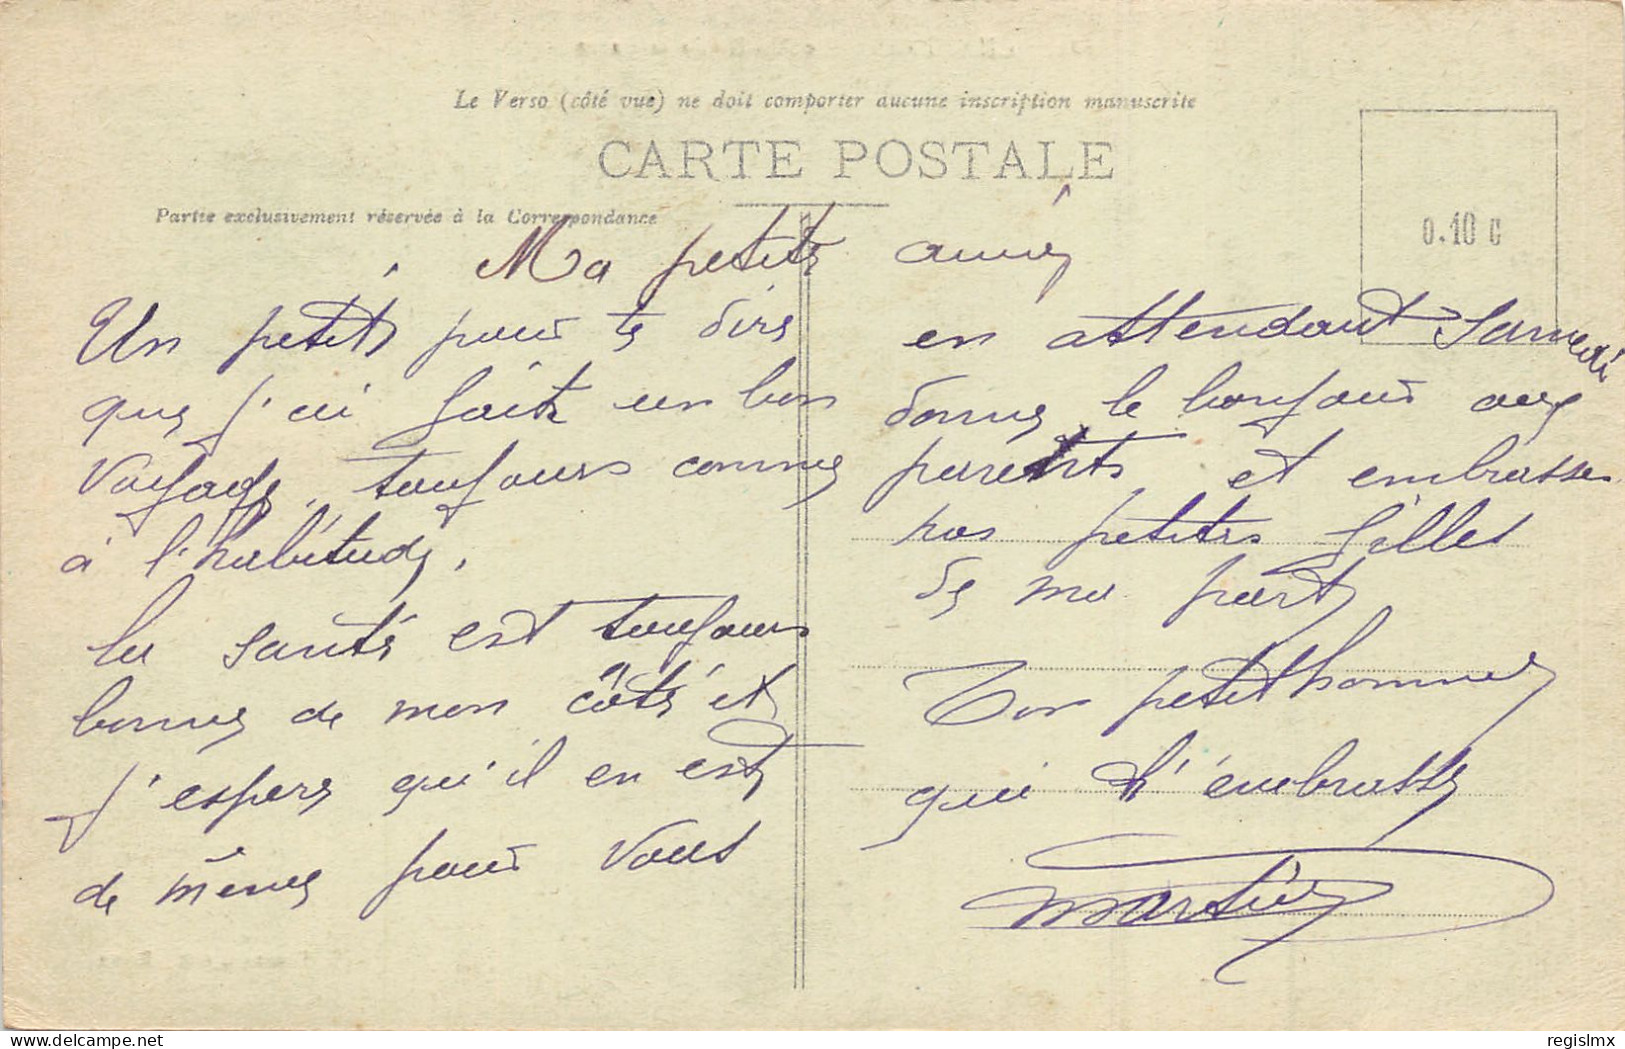 Le Verso (côté vue) ne doit comporter aucune inscription manuscrite
CARTE POSTALE
Partie exclusivement réservée à la Correspondance
0.10 C
Ma petite
Un petit pour te dire
que j'ai fait un bon
voyage, toujours comme
à l'habitude,
la santé est toujours
bonne de mon côté et
j'espère qu'il en est
de même pour vous
en attendant Samedi
donne le bonjour aux
parents et embrasse
nos petites filles
de ma part
Ton petit homme
qui t'embrasse
delcampe.net
regislmx